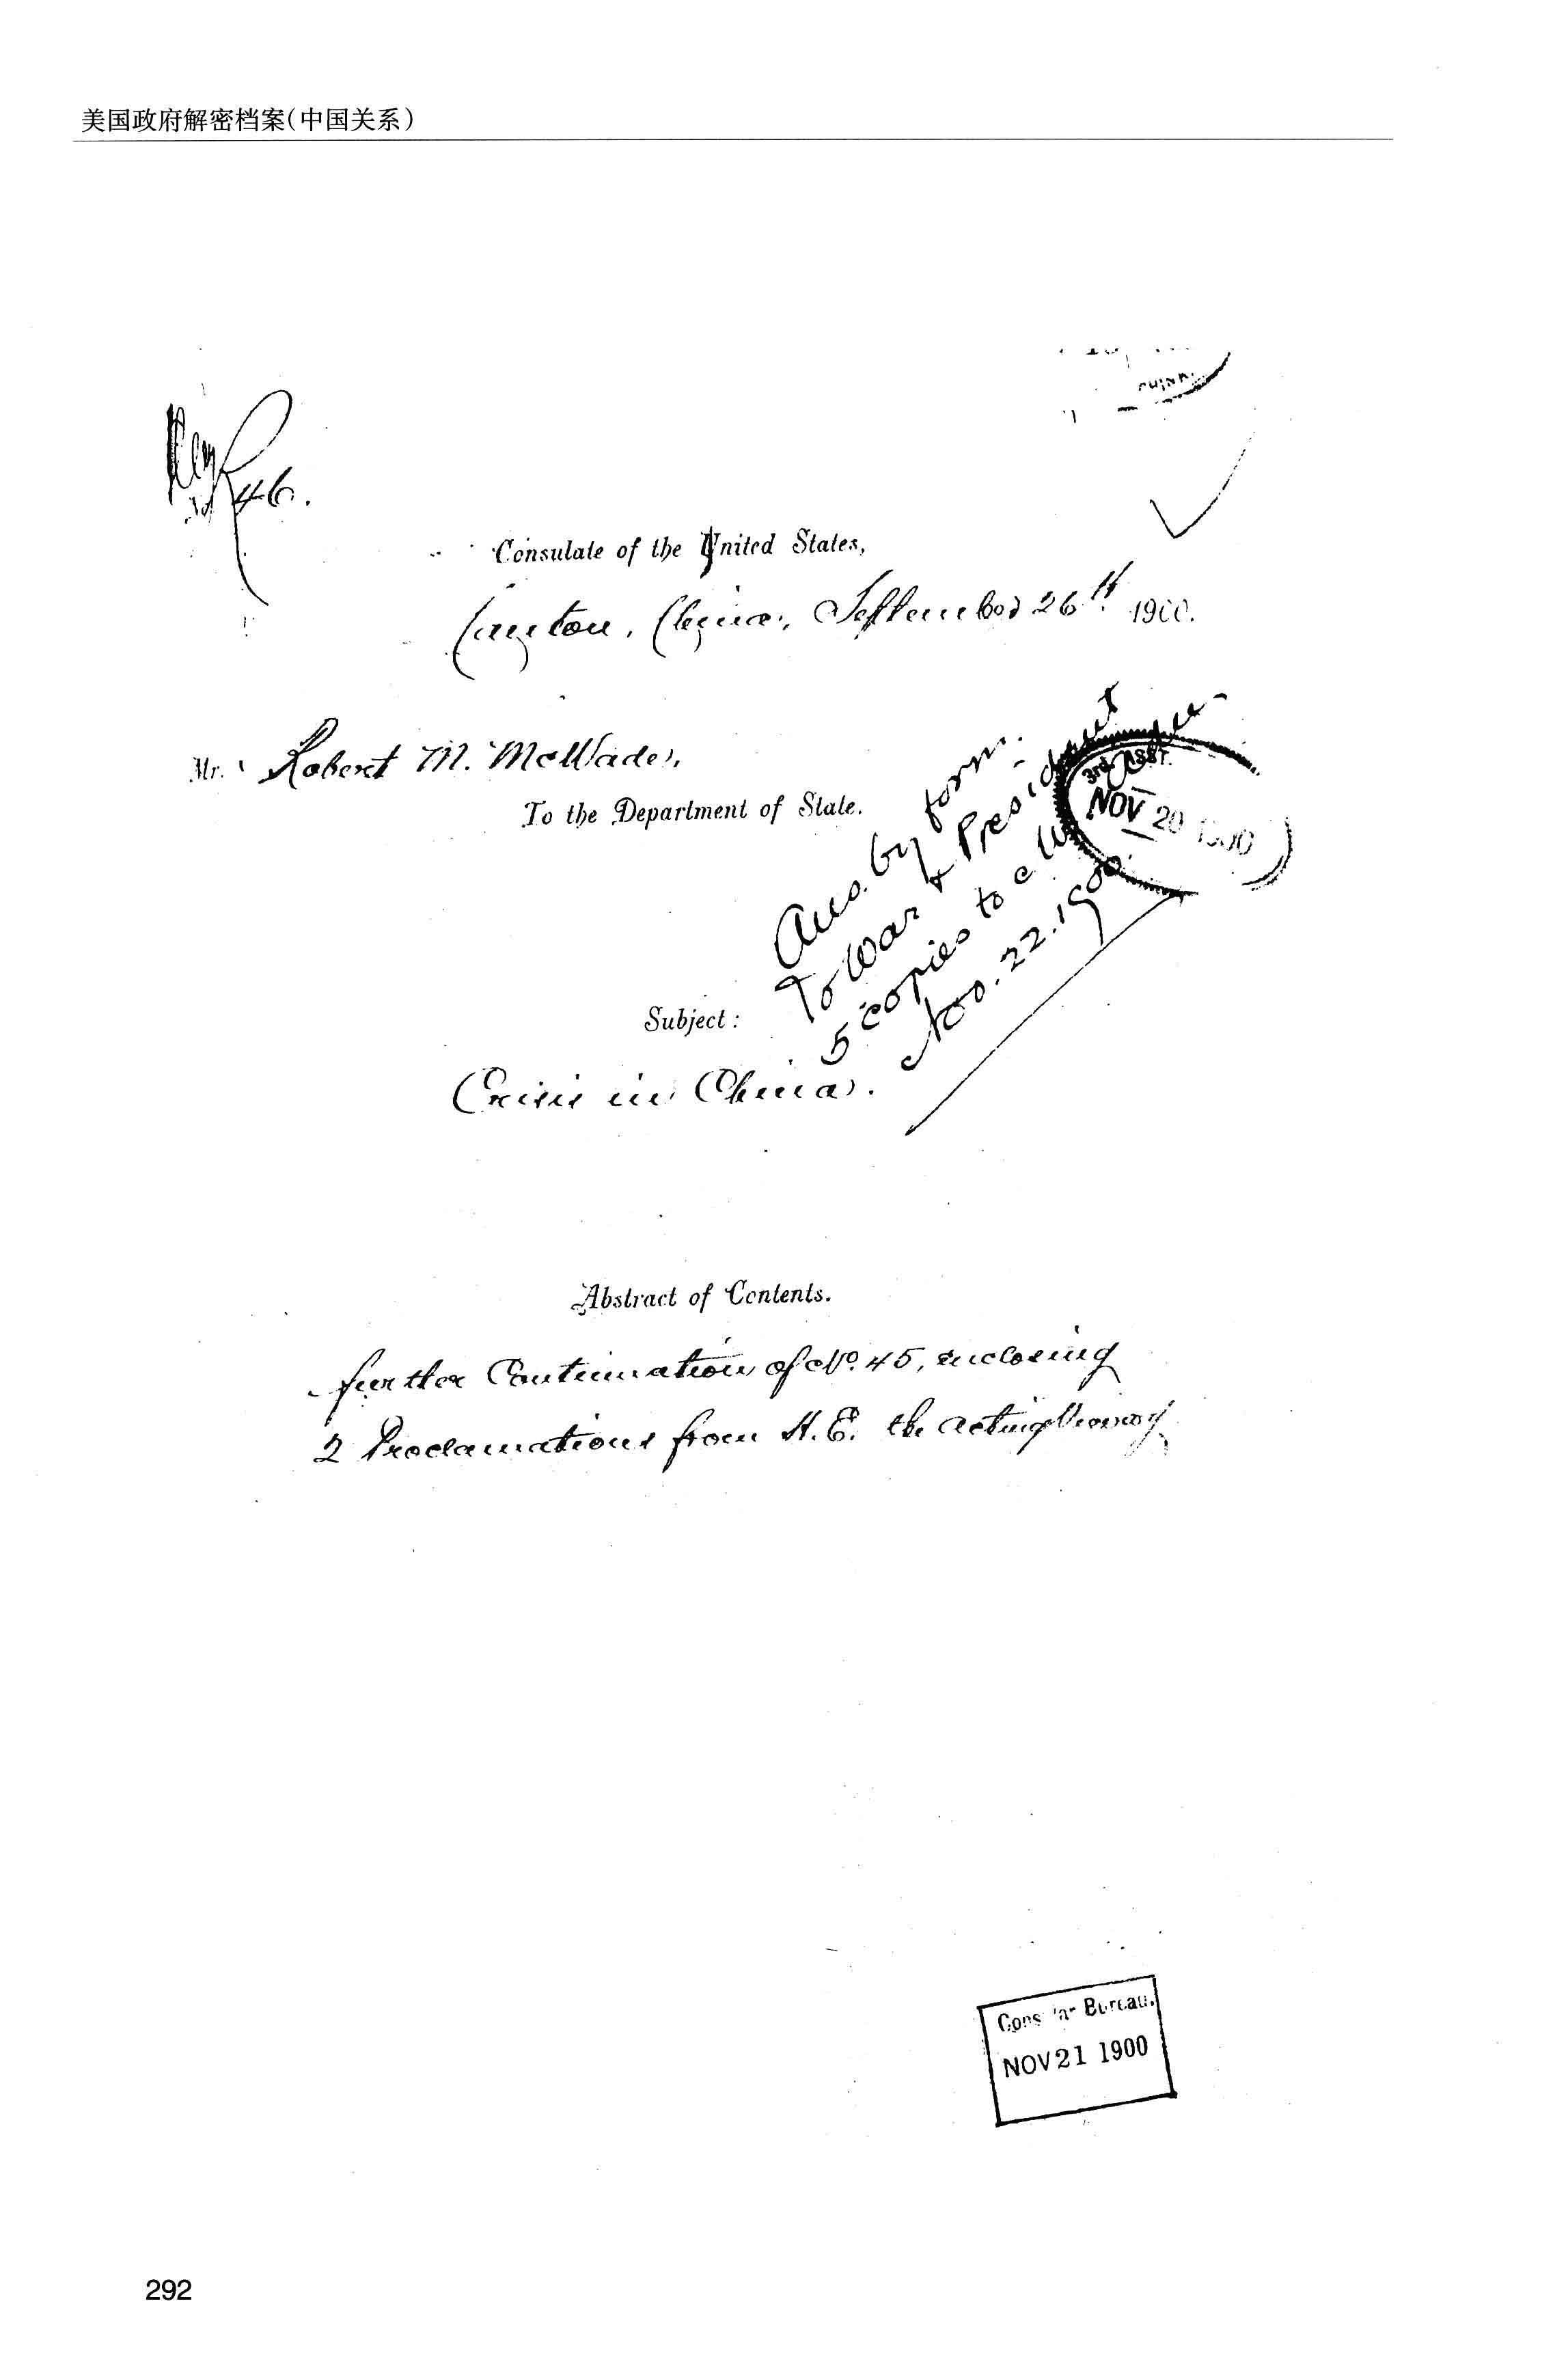 美国政府解密档案(中国关系)
46.
Consulate of the United States,
Canton, China, September 26th 1900.
Mr. Robert M. McWade,
To the Department of State.
3rd ASST.
NOV 20 1900
Ans. by form.
To War & President
5 copies to
Nov. 22. 1900
Subject:
Crisis in China.
Abstract of Contents.
further Continuation of No. 45, enclosing
2 Proclamations from H.E. the acting Viceroy
Consular Bureau.
NOV 21 1900
292